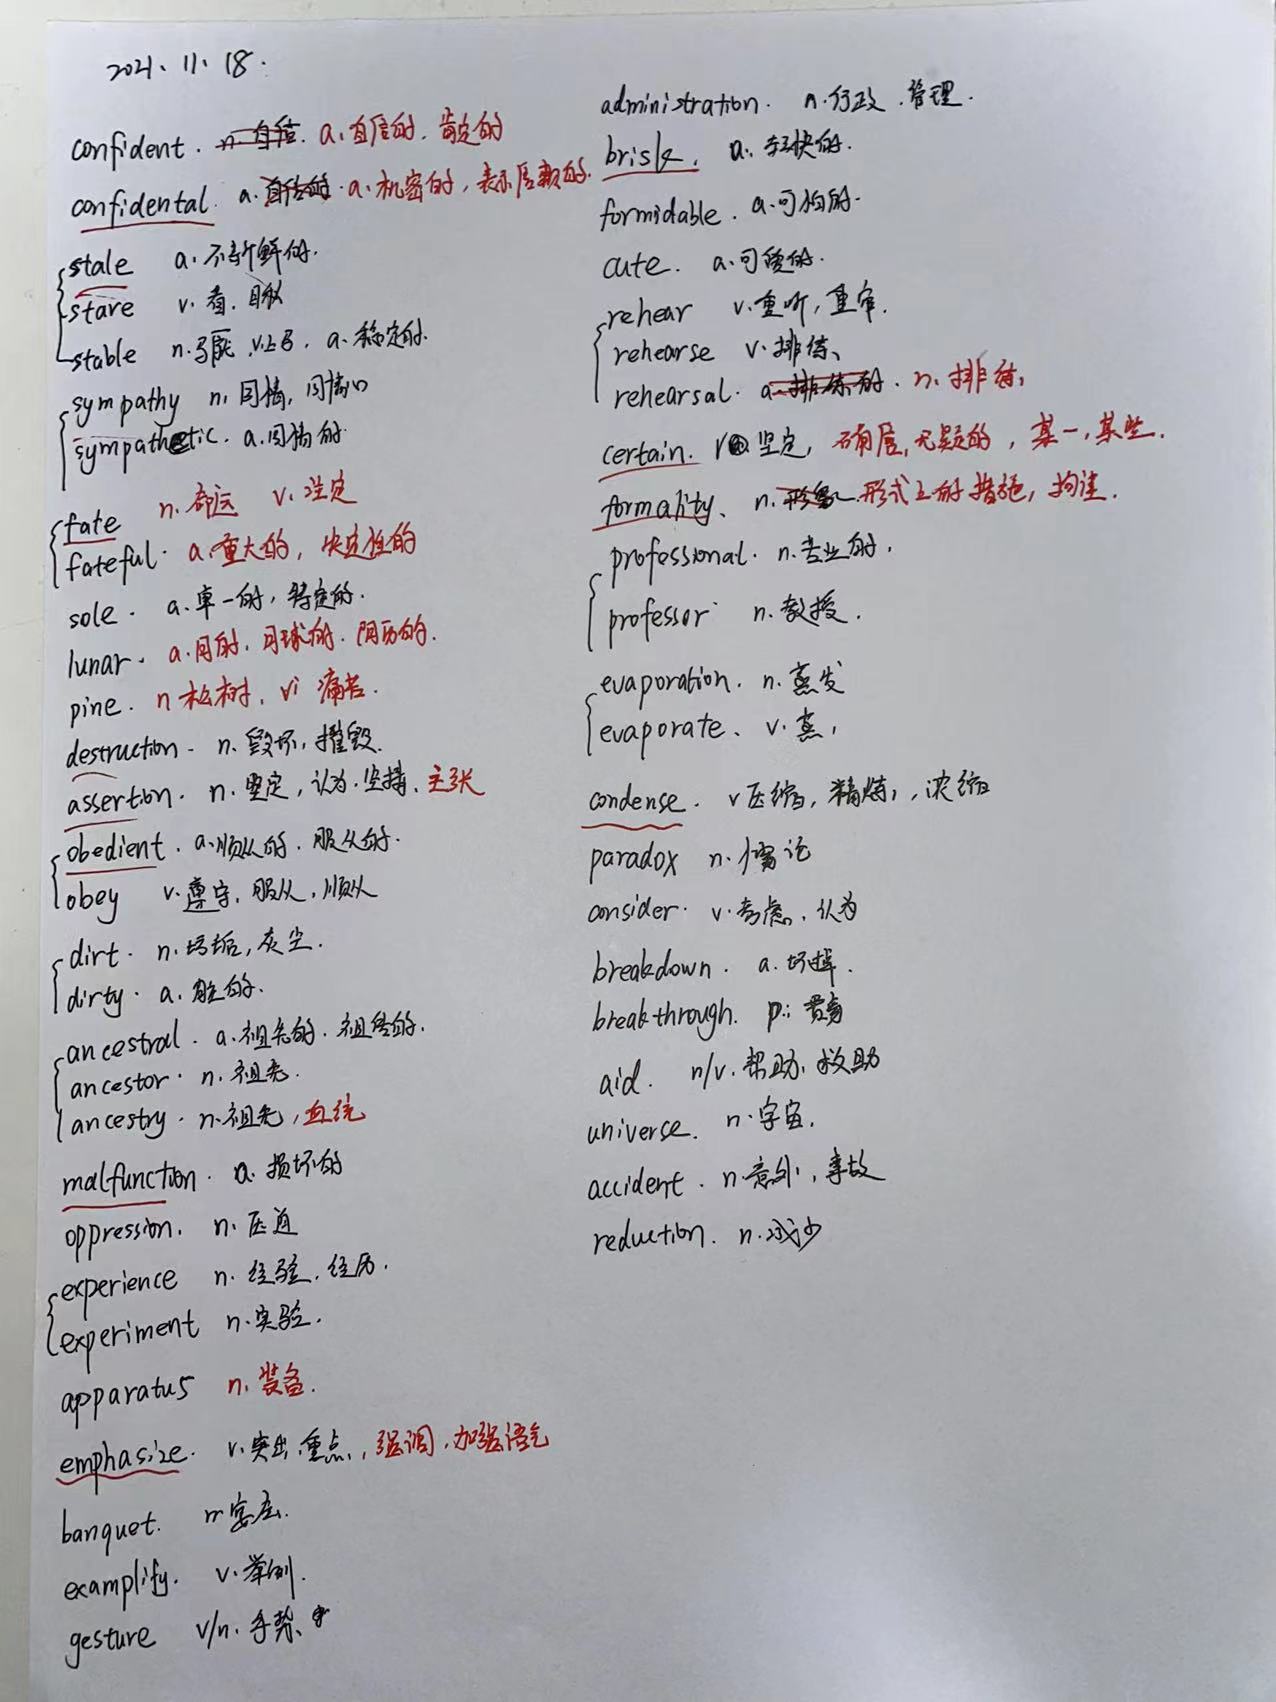 2021.11.18.
confident. n. 自信. a.自信的. 肯定的
confidental. a.自信的. a.机密的, 表示信赖的.
stale a.不新鲜的.
stare v.看.
stable n.马厩, v.上马, a.稳定的.
sympathy n.同情, 同情心
sympathetic. a.同情的.
fate n.命运 v.注定
fateful. a.重大的, 决定性的
sole. a.单一的, 特定的.
lunar. a.月的, 月球的. 阴历的.
pine. n 松树, vi 痛苦.
destruction. n.毁坏, 摧毁.
assertion. n.坚定, 认为.坚持、主张
obedient. a.顺从的. 服从的.
obey v.遵守, 服从, 顺从
dirt. n.污垢, 灰尘.
dirty. a.脏的.
ancestral. a.祖先的. 祖传的.
ancestor. n.祖先.
ancestry. n.祖先, 血统
malfunction. a.损坏的
oppression. n.压迫
experience n.经验, 经历.
experiment n.实验.
apparatus n.装备.
emphasize. v.突出.重点, 强调, 加强语气
banquet. n 宴会.
examplify. v.举例.
gesture v/n.手势、
administration. n.行政.管理.
brisk. a.轻快的.
formidable. a.可怕的.
cute. a.可爱的.
rehear v.重听, 重审.
rehearse v.排练、
rehearsal. a.排练的. n.排练,
certain. 坚定, 确信, 无疑的, 某一, 某些.
formality、 n.形象 形式上的措施, 拘谨.
professional. n.专业的,
professor n.教授.
evaporation. n.蒸发
evaporate、 v.蒸,
condense. v 压缩, 精炼, 浓缩
paradox n.悖论
consider. v.考虑, 认为
breakdown. a.坏掉.
breakthrough. p.: 贯穿
aid. n/v.帮助, 救助
universe. n.宇宙.
accident. n.意外, 事故
reduction. n.减少